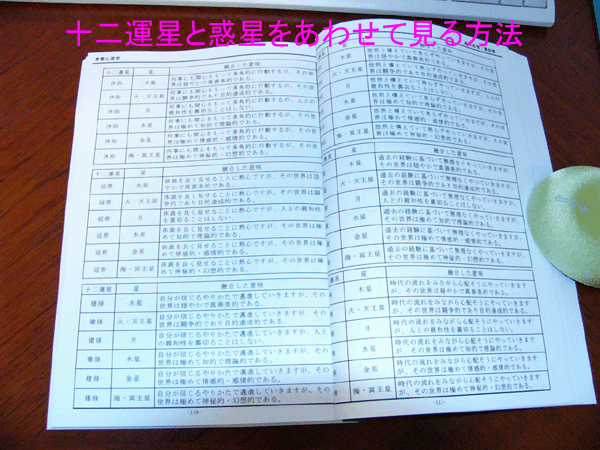 十二運星と惑星をあわせて見る方法
十二運星 星 融合した意味
沐浴 木星 何事にも関心をもって多角的に行動するが、その世
界は穏やかで真善美的である。
沐浴 火・天王星 何事にも関心をもって多角的に行動するが、その世
界は闘争的であり目的達成的である。
沐浴 月 何事にも関心をもって多角的に行動するが、人との
親和性を裏切ることはしない。
沐浴 水星 何事にも関心をもって多角的に行動するが、その世
界は極めて知的で理論的である。
沐浴 金星 何事にも関心をもって多角的に行動するが、その世
界は極めて情感的・感情的である。
沐浴 海・冥王星 何事にも関心をもって多角的に行動するが、その世
界は極めて神秘的・幻想的である。
十二運星 星 融合した意味
冠帯 木星 体裁を良く見せることに熱心ですが、その世界は穏
やかで真善美的である。
冠帯 火・天王星 体裁を良く見せることに熱心ですが、その世界は闘
争的であり目的達成的である。
冠帯 月 体裁を良く見せることに熱心ですが、人との親和性
を裏切ることはしない。
冠帯 水星 体裁を良く見せることに熱心ですが、その世界は極
めて知的で理論的である。
冠帯 金星 体裁を良く見せることに熱心ですが、その世界は極
めて情感的・感情的である。
冠帯 海・冥王星 体裁を良く見せることに熱心ですが、その世界は極
めて神秘的・幻想的である。
十二運星 星 融合した意味
建禄 木星 自分が信じるやりかたで邁進していきますが、その
世界は穏やかで真善美的である。
建禄 火・天王星 自分が信じるやりかたで邁進していきますが、その
世界は闘争的であり目的達成的である。
建禄 月 自分が信じるやりかたで邁進していきますが、人と
の親和性を裏切ることはしない。
建禄 水星 自分が信じるやりかたで邁進していきますが、その
世界は極めて知的で理論的である。
建禄 金星 自分が信じるやりかたで邁進していきますが、その
世界は極めて情感的・感情的である。
建禄 海・冥王星 自分が信じるやりかたで邁進していきますが、その
世界は極めて神秘的・幻想的である。
-110-
悠然と構えていて焦らずやっていきますが、その世
界は闘争的であり目的達成的である。
月 悠然と構えていて焦らずやっていきますが、人との
親和性を裏切ることはしない。
水星 悠然と構えていて焦らずやっていきますが、その世
界は極めて知的で理論的である。
金星 悠然と構えていて焦らずやっていきますが、その世
界は極めて情感的・感情的である。
海・冥王星 悠然と構えていて焦らずやっていきますが、その世
界は極めて神秘的・幻想的である。
星 融合した意味
木星 過去の経験に基づいて無理なくやっていきますが、
その世界は穏やかで真善美的である。
火・天王星 過去の経験に基づいて無理なくやっていきますが、
その世界は闘争的であり目的達成的である。
月 過去の経験に基づいて無理なくやっていきますが、
人との親和性を裏切ることはしない。
水星 過去の経験に基づいて無理なくやっていきますが、
その世界は極めて知的で理論的である。
金星 過去の経験に基づいて無理なくやっていきますが、
その世界は極めて情感的・感情的である。
海・冥王星 過去の経験に基づいて無理なくやっていきますが、
その世界は極めて神秘的・幻想的である。
星 融合した意味
木星 時代の流れをみながら心配そうにやっていきます
が、その世界は穏やかで真善美的である。
火・天王星 時代の流れをみながら心配そうにやっていきます
が、その世界は闘争的であり目的達成的である。
月 時代の流れをみながら心配そうにやっていきます
が、人との親和性を裏切ることはしない。
水星 時代の流れをみながら心配そうにやっていきます
が、その世界は極めて知的で理論的である。
金星 時代の流れをみながら心配そうにやっていきます
が、その世界は極めて情感的・感情的である。
海・冥王星 時代の流れをみながら心配そうにやっていきます
が、その世界は極めて神秘的・幻想的である。
-111-